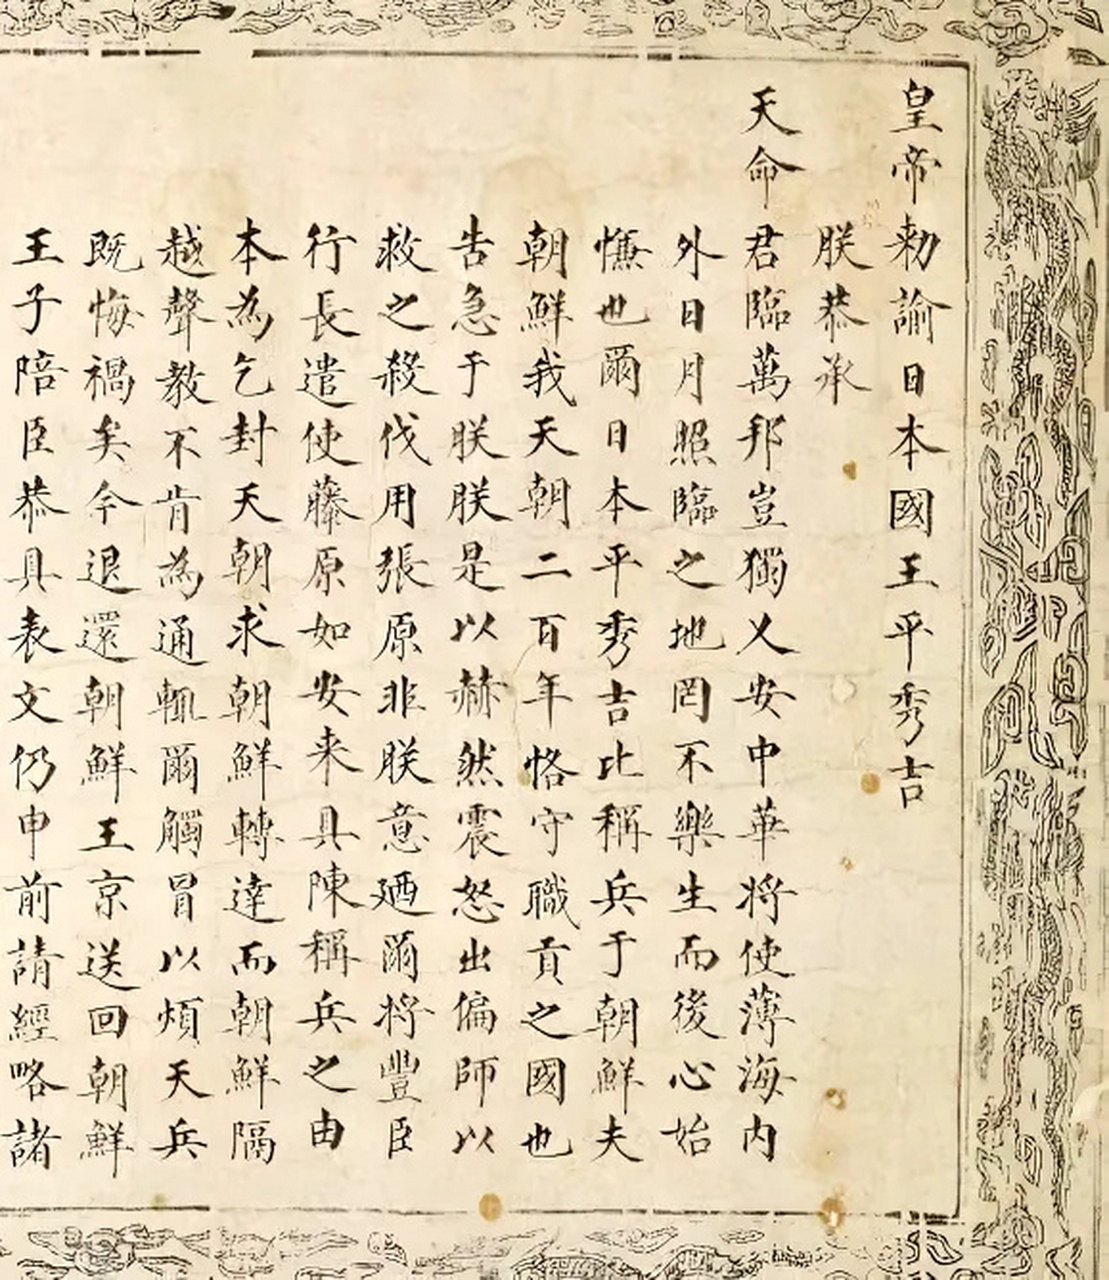 皇帝勅諭日本國王平秀吉
朕恭承
天命君臨萬邦豈獨乂安中華將使薄海內
外日月照臨之地罔不樂生而後心始
慊也爾日本平秀吉比稱兵于朝鮮夫
朝鮮我天朝二百年恪守職貢之國也
告急于朕朕是以赫然震怒出偏師以
救之殺伐用張原非朕意廼爾將豐臣
行長遣使藤原如安来具陳稱兵之由
本為乞封天朝求朝鮮轉達而朝鮮隔
越聲教不肯為通輒爾觸冒以煩天兵
既悔禍矣今退還朝鮮王京送回朝鮮
王子陪臣恭具表文仍申前請經略諸